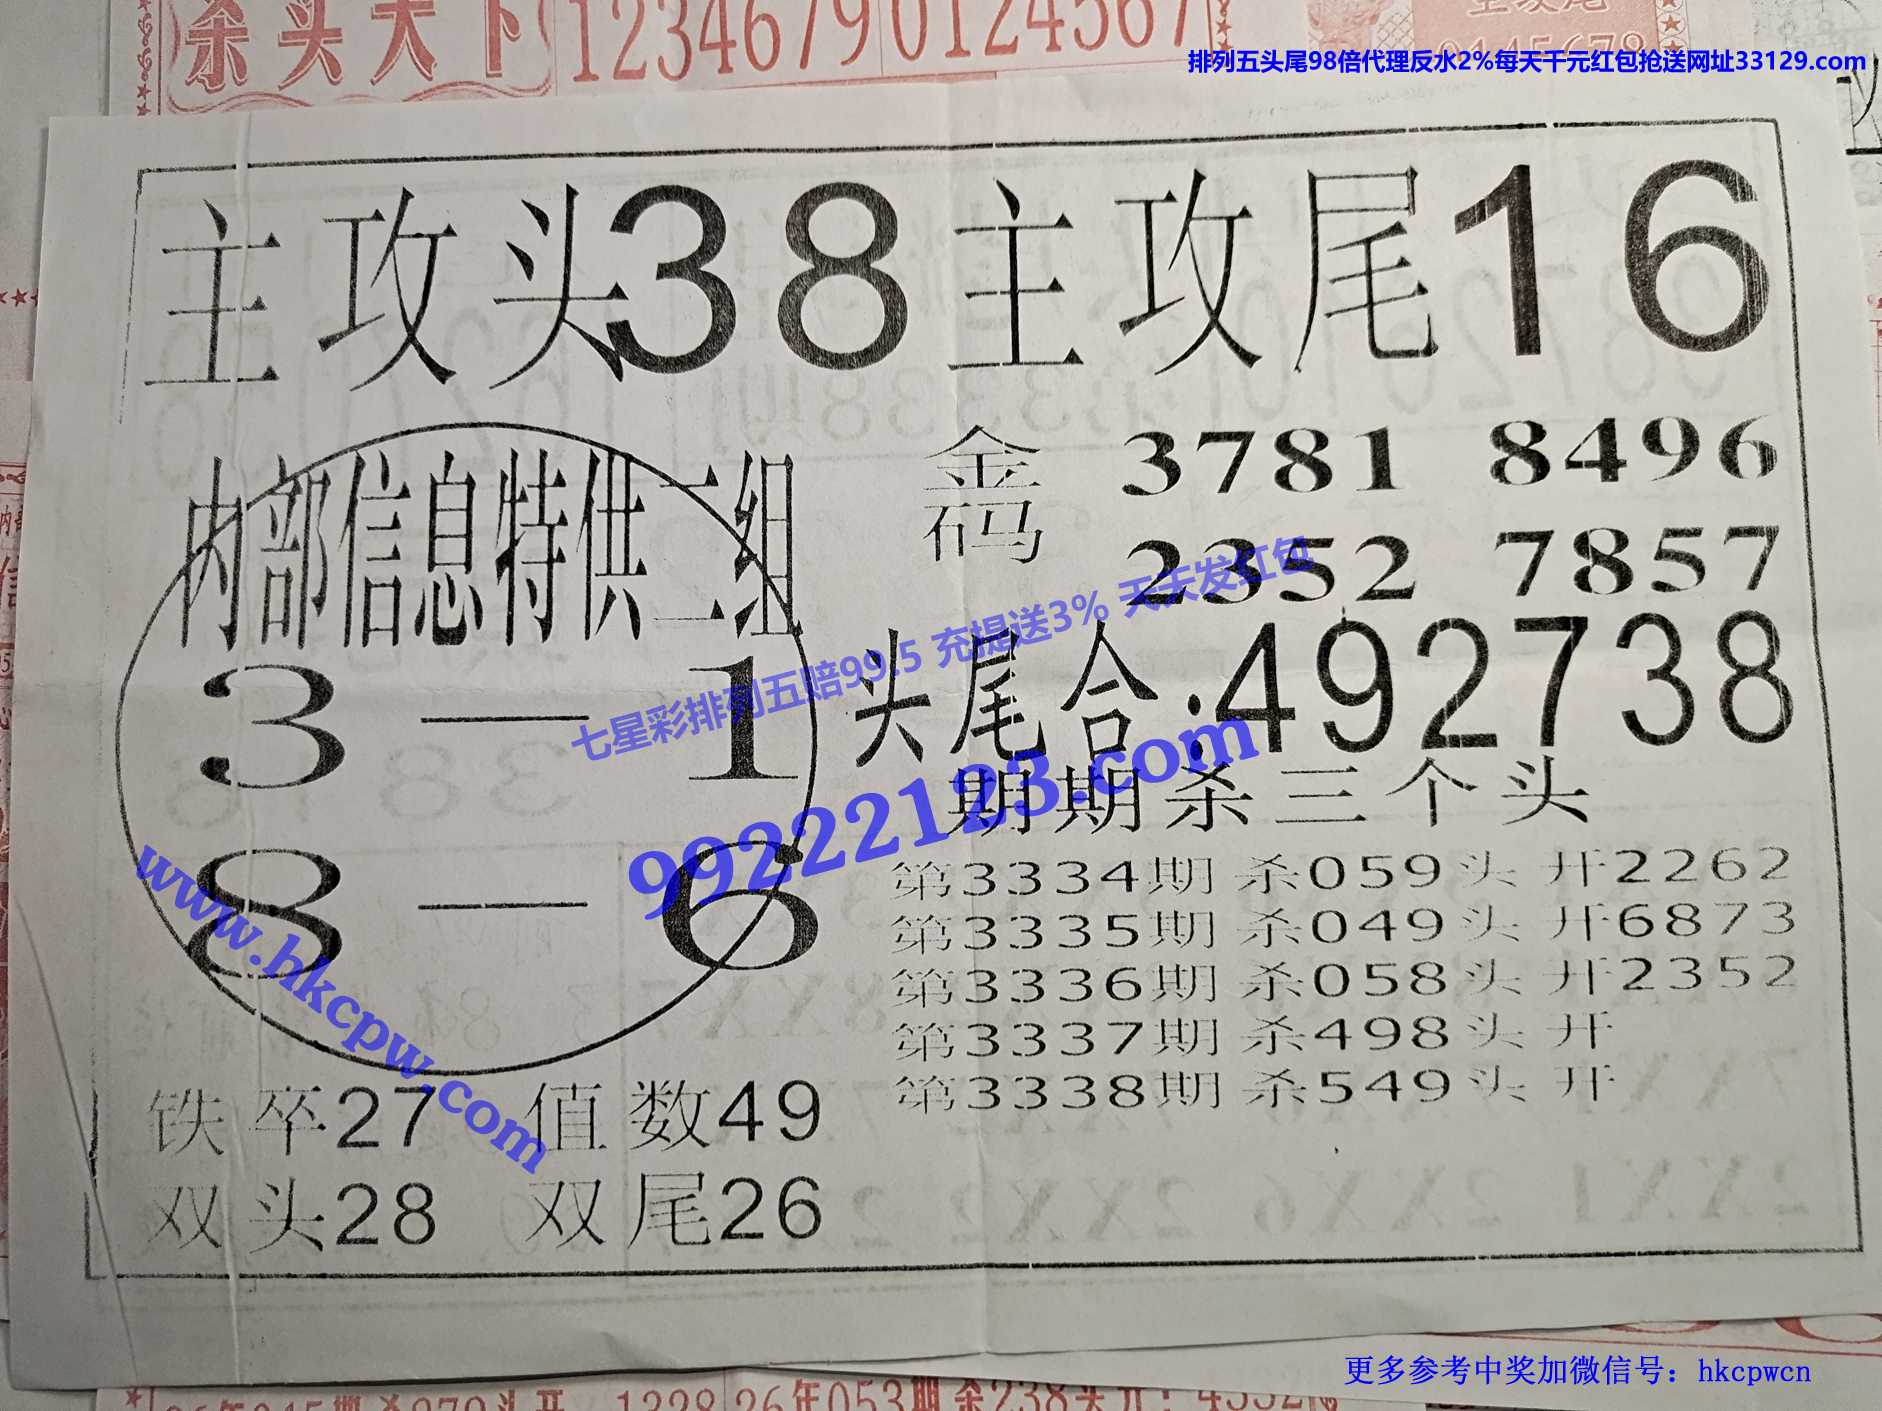 杀头天下 12346790124567
排列五头尾98倍代理反水2%每天千元红包抢送网址33129.com
主攻头38 主攻尾16
内部信息特供二组
3—1
8—6
金码 3781 8496
2352 7857
七星彩排列五赔99.5 充提送3% 天天发红包
头尾合:492738
99222123.com
www.hkcpw.com
期期杀三个头
第3334期杀059头开2262
第3335期杀049头开6873
第3336期杀058头开2352
第3337期杀498头开
第3338期杀549头开
铁卒27 值数49
双头28 双尾26
更多参考中奖加微信号：hkcpwcn